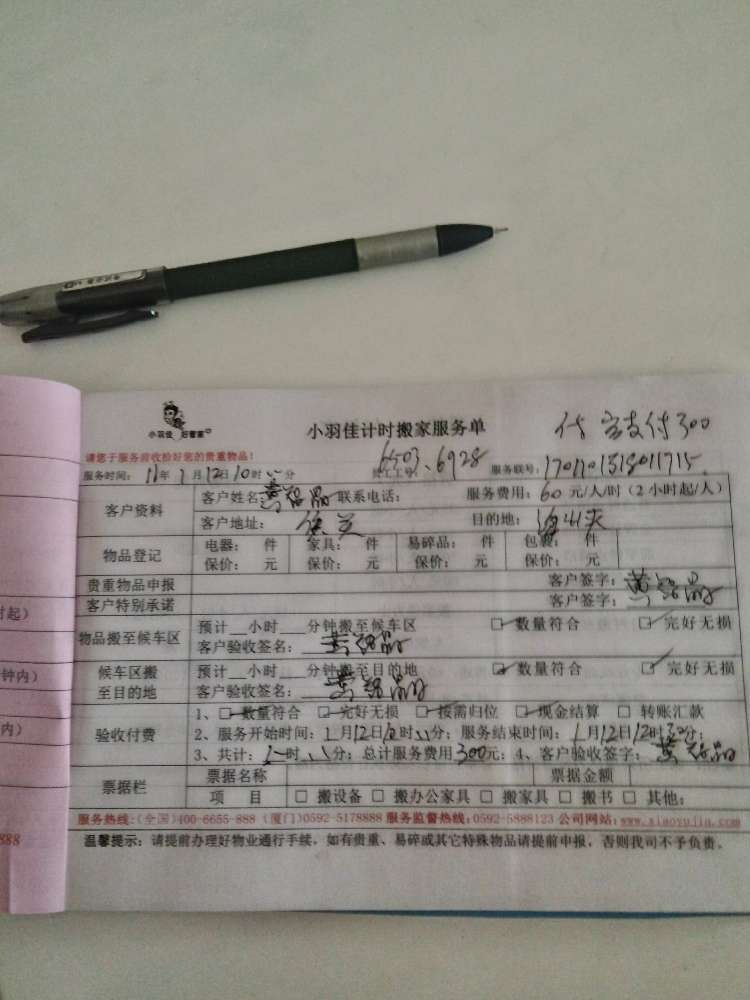 小羽佳 好管家
小羽佳计时搬家服务单
代 支付300
请您于服务前收捡好您的贵重物品!
服务时间: 年 1月12日10时 分 员工工号: 6503、6928 服务联号:
客户资料
客户姓名: 黄 联系电话: 服务费用: 60 元/人/时 (2 小时起/人)
客户地址: 目的地:
物品登记
电器: 件 家具: 件 易碎品: 件 包裹: 件
保价: 元 保价: 元 保价: 元 保价: 元
贵重物品申报 客户签字: 黄
客户特别承诺 客户签字: 黄
物品搬至候车区
预计__小时___分钟搬至候车区 □ 数量符合 □ 完好无损
客户验收签名: 黄
候车区搬至目的地
预计__小时___分钟搬至目的地 □ 数量符合 □ 完好无损
客户验收签名: 黄
验收付费
1、□ 数量符合 □ 完好无损 □ 按需归位 □ 现金结算 □ 转账汇款
2、服务开始时间: 1月12日 时 分; 服务结束时间: 1月12日12时30分;
3、共计: 时 分; 总计服务费用 300元; 4、客户验收签字: 黄
票据栏
票据名称 票据金额
项 目 □ 搬设备 □ 搬办公家具 □ 搬家具 □ 搬书 □ 其他:
服务热线:(全国)400-6655-888 (厦门)0592-5178888 服务监督热线:0592-5888123 公司网站:www.xiaoyujia.com
温馨提示: 请提前办理好物业通行手续, 如有贵重、易碎或其它特殊物品请提前申报, 否则我司不予负责。
时起)
钟内)
内)
888